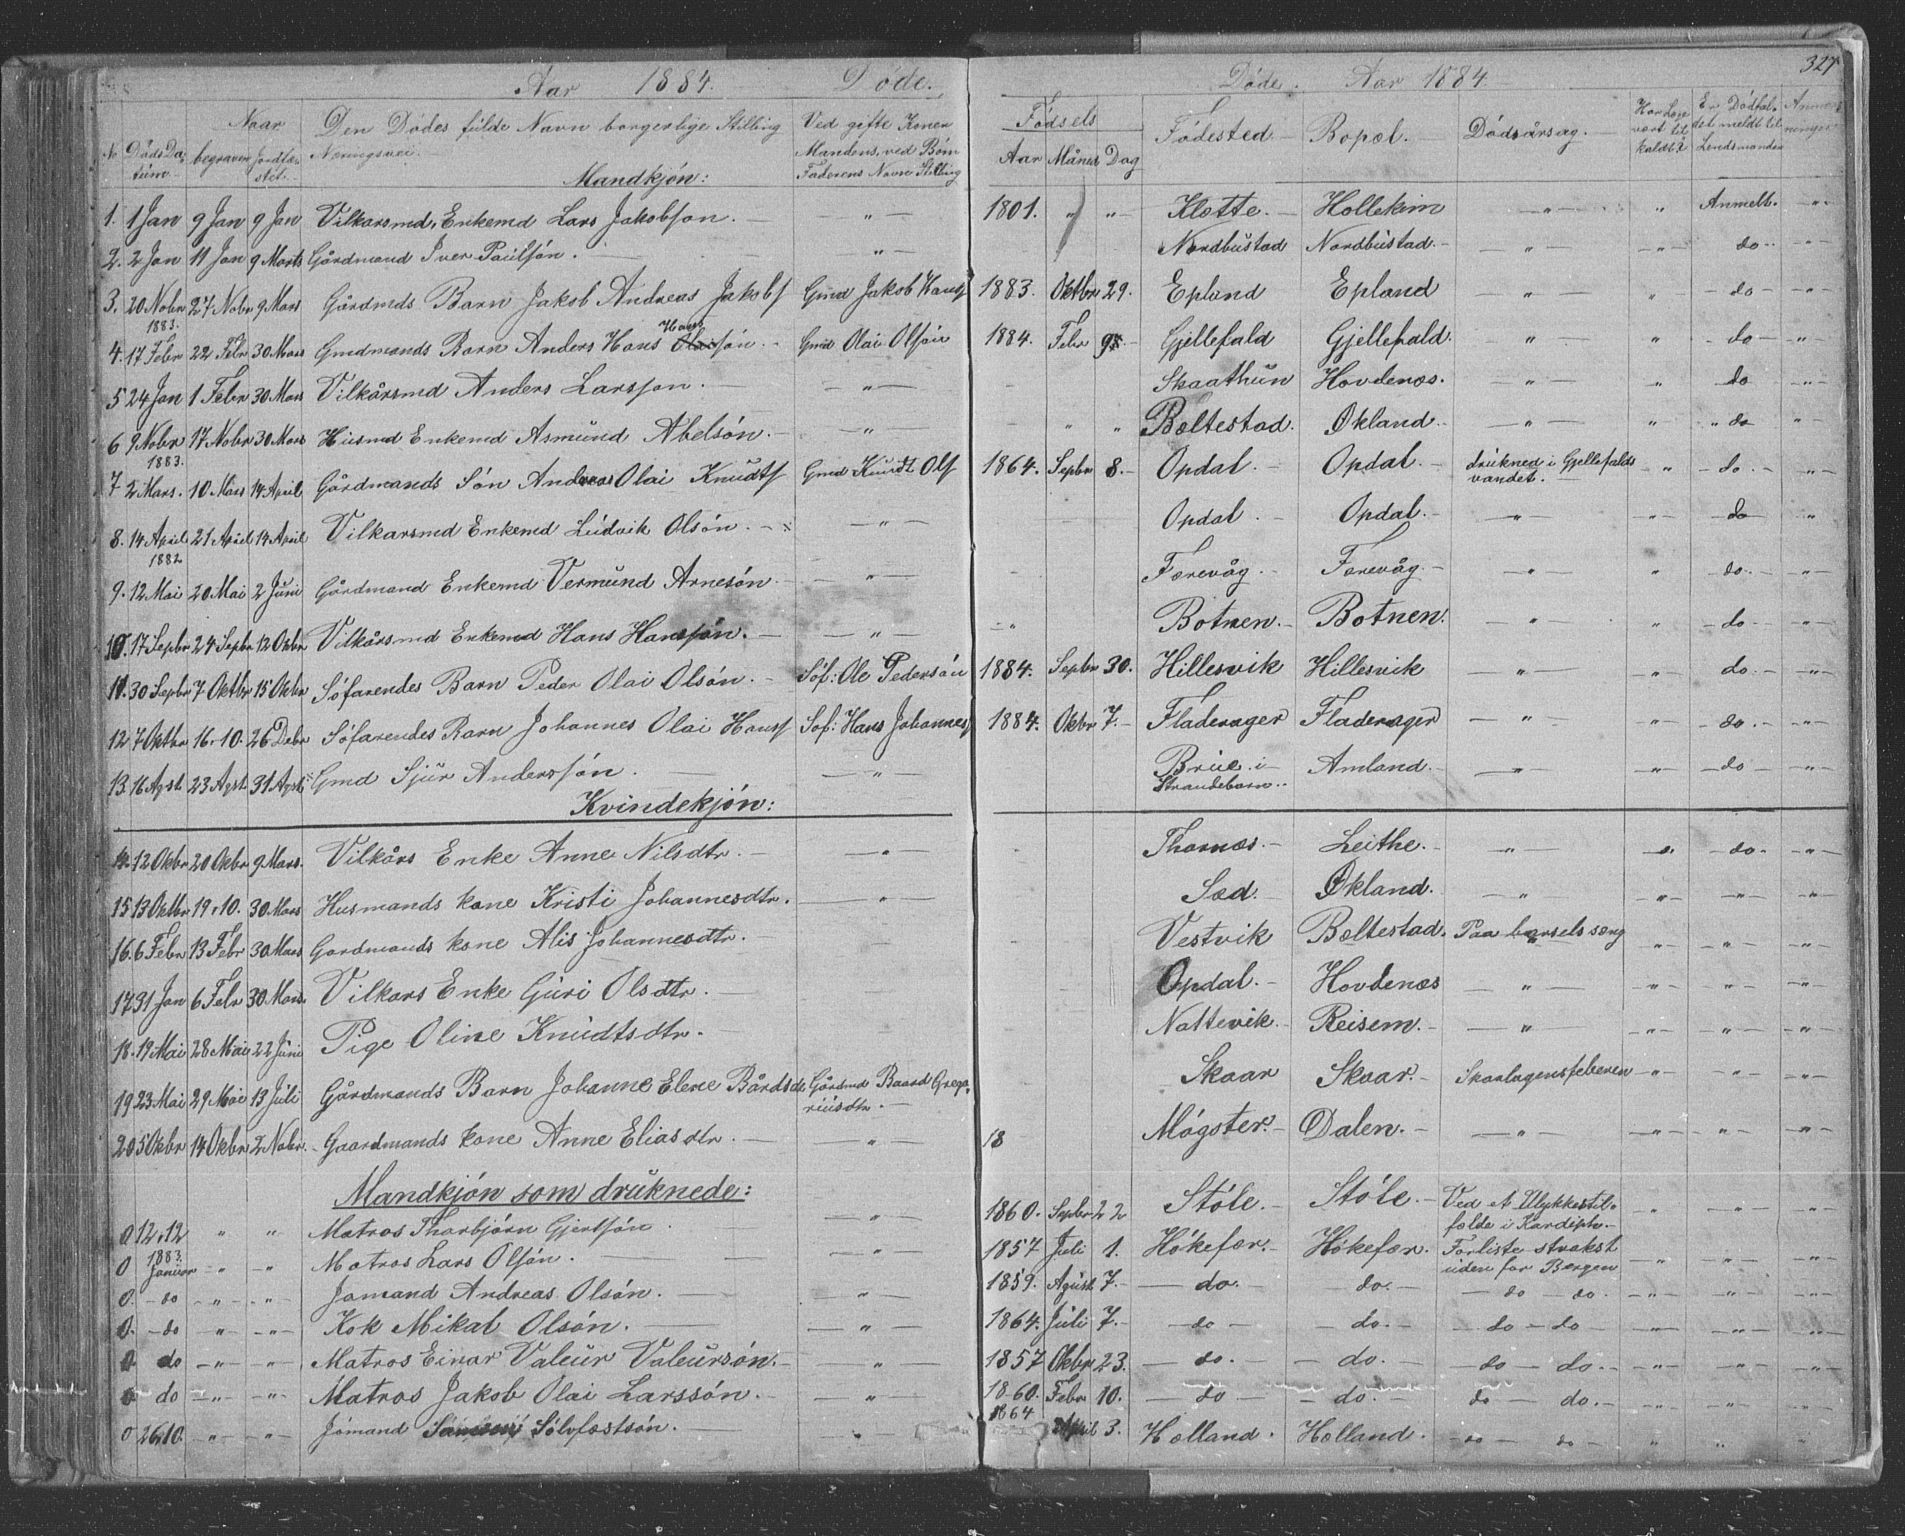 Aar 1884. Døde. Døde. Aar 1884. 327
No Døds Da- tüm. Naar begraven Jordfæ- stet. Den Dødes fülde Navn borgerlige Stilling Næringsvei. Ved gifte Koner Mandens, ved Børn Faderens Navn Stilling Fødsels Aar Måned Dag Fødested Bopæl. Dødsårsag. Er Dødfal- det meldt til Lendsmanden Anmær- ninger
Mandkjøn:
1. 1 Jan 9 Jan 9 Jan Vilkarsmd, Enkemd Lars Jakobson. — " — 1801. " " — Klette. — Hollekim — " — " Anmelt. — " -
2. 2 Jan 11 Jan 9 Marts Gårdmand Iver Paülsøn. — " — Nordbüstad Nordbüstad. — — " — — " — do. — — " —
3. 20 Nobr 1883. 27 Nobr 9 Mars Gårdmds Barn Jakob Andreas Jakobs Gmd Jakob Hans 1883. Oktbr 29. Epland Epland — " — " — do — — " —
4. 17 Febr 22 Febr 30 Mars Gmdmands Barn Anders Hans Hans søn. — Gmd Olai Olsøn 1884. Febr 9. — Gjellefald Gjellefald. — " — " — do — — " —
5 24 Jan 1 Febr 30 Mars Vilkårsmd Anders Larsson. — — " — Skaathün Hovdenæs. — " — " do — " —
6 9 Nobr 1883. 17 Nobr 30 Mars Hüsmd Enkemd Asmünd Abelsøn. — — " — " " Bæltestad. Økland. — " — " " do "
7 2 Mars. 10 Mars 14 April Gårdmands Søn Andreas Olai Knudts Gmd Knudt Ols 1864. Sepbr 8. — Opdal. — Opdal. — drükned i Gjellefalds vandet. — " — do. — — " —
8. 14 April 1882 21 April 14 April Vilkarsmd Enkemd Lüdvik Olsøn. — — " — Opdal. — Opdal. — — " — — " — do "
9. 12 Mai 20 Mai 2 Jüni Gårdmand Enkemd Vermünd Arnesøn. — " — Færevåg. — Færevåg. — — " — " do. — — " —
10. 17 Sepbr 24 Sepbr 12 Okbr Vilkårsmd Enkemd Hans Hanssøn. — — " — — " Botnen. — Botnen. — " — " do — — " —
11. 30 Sepbr 7 Oktbr 15 Okbr Søfarendes Barn Peder Olai Olsøn. — Søf: Ole Pedersøn 1884. Sepbr 30. Hillesvik Hillesvik — " — " do. — — " —
12 7 Oktbr 16.-10. 26 Debr Søfarendes Barn Johannes Olai Hans Søf: Hans Johannes 1884. Okbr 7. — Fladerager Fladerager — " — " — do. — — " —
13. 16 Agst. 23 Agst. 31 Agst. Gmd Sjür Anderssøn. — — " — Brüe i Strandebarn. Amland. — — " — " — do — " —
Kvindekjøn:
14. 12 Okbr 20 Okbr 9 Mars. Vilkårs Enke Anne Nilsdtr. — — " — Thornæs. — Leithe. — — " — — do. — — " —
15 13 Oktbr 19.-10. 30 Mars Husmands kone Kristi Johannesdtr. — " — Sæd. Økland. — " — — " — — " — — " —
16. 6 Febr 13 Febr 30 Mars Gardmands kone Alis Johannesdtr. — Vestvik Bæltestad. Paa barselsseng — " — — " — — " —
17. 31 Jan 6 Febr 30 Mars. Vilkars Enke Güri Olsdtr. — Opdal. — Hovdenæs — " — — " — — " — — " —
18. 19 Mai 28 Mai 22 Jüni Pige Oline Knüdtsdtr. — Nattevik. — Reisem. — — " — — " — — " — — " —
19 23 Mai 29 Mai 13 Jüli Gårdmands Barn Johanne Elene Bårdsd. Gårdmd Baard Grego- riüsdtr. — Skaar Skaar. — Skarlagensfeberen — " — — " — — " —
20 5 Okbr 14 Okbr 2 Nobr. Gaardmands kone Anne Eliasdtr. — " 18 Møgster. — Dalen. — — " — — " — — " — — " —
Mandkjøn som drüknede:
0 12.12 1883. " " Matros Thorbjørn Gjertsøn. — — " — 1860. Sepbr 22 Støle. — Støle. — Ved et Ulykkestil- fælde i Kardiph. — " — — " — — " —
0 Januar — " — — " — Matros Lars Olsøn. — — " — 1857 Jüli 1. Høkefær. — Høkefær. Forliste strakst üden for Bergen — " — — " — — " —
0. — do — " — — " — Jømand Andreas Olsøn. — — " — 1859. Agüst 7. — — do. — — do. — — do — do. — — " — — " — — " —
0. — do — " — — " — Kok Mikal Olsøn. — — " — 1864. Jüli 7. — — do — — do. — — do — do — " — — " — — " —
0 do — " — — " — Matros Einar Valeür Valeürsøn. — " 1857 Okbr 23. — do. — — do. — do — do. — — " — — " — — " —
0 do — " — — " — Matros Jakob Olai Larssøn. — — " — 1860. Febr 10. — do — — do. — do — do. — — " — — " — — " —
0 26.10. — " — — " — Jømand Sølvfæstsøn. — " 1864 April 3. Hælland. Hælland. — do — do — " " "